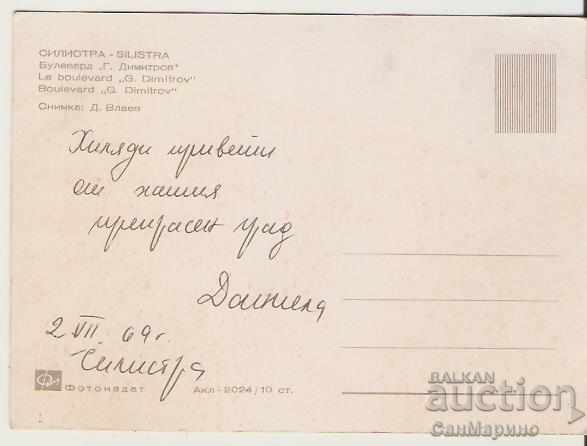 СИЛИСТРА - SILISTRA
Булевард „Г. Димитров"
Le boulevard „G. Dimitrov"
Boulevard „G. Dimitrov"
Снимка: Д. Влаев
Хиляди привети
от нашия
прекрасен град
Даниела
2 VII 69 г.
Силистра
Фотоиздат Акл-2024/10 ст.
BALKAN
auction
СанМарино